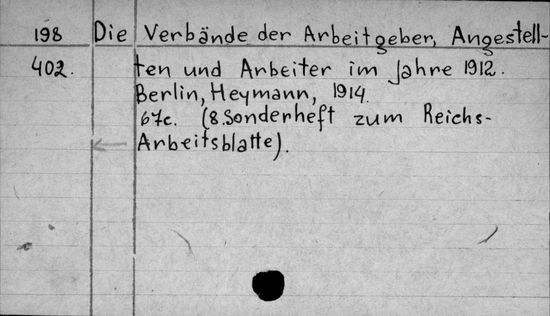 198 Die Verbände der Arbeitgeber, Angestell-
402. ten und Arbeiter im Jahre 1912.
Berlin, Heymann, 1914.
67c. (8.Sonderheft zum Reichs-
Arbeitsblatte).